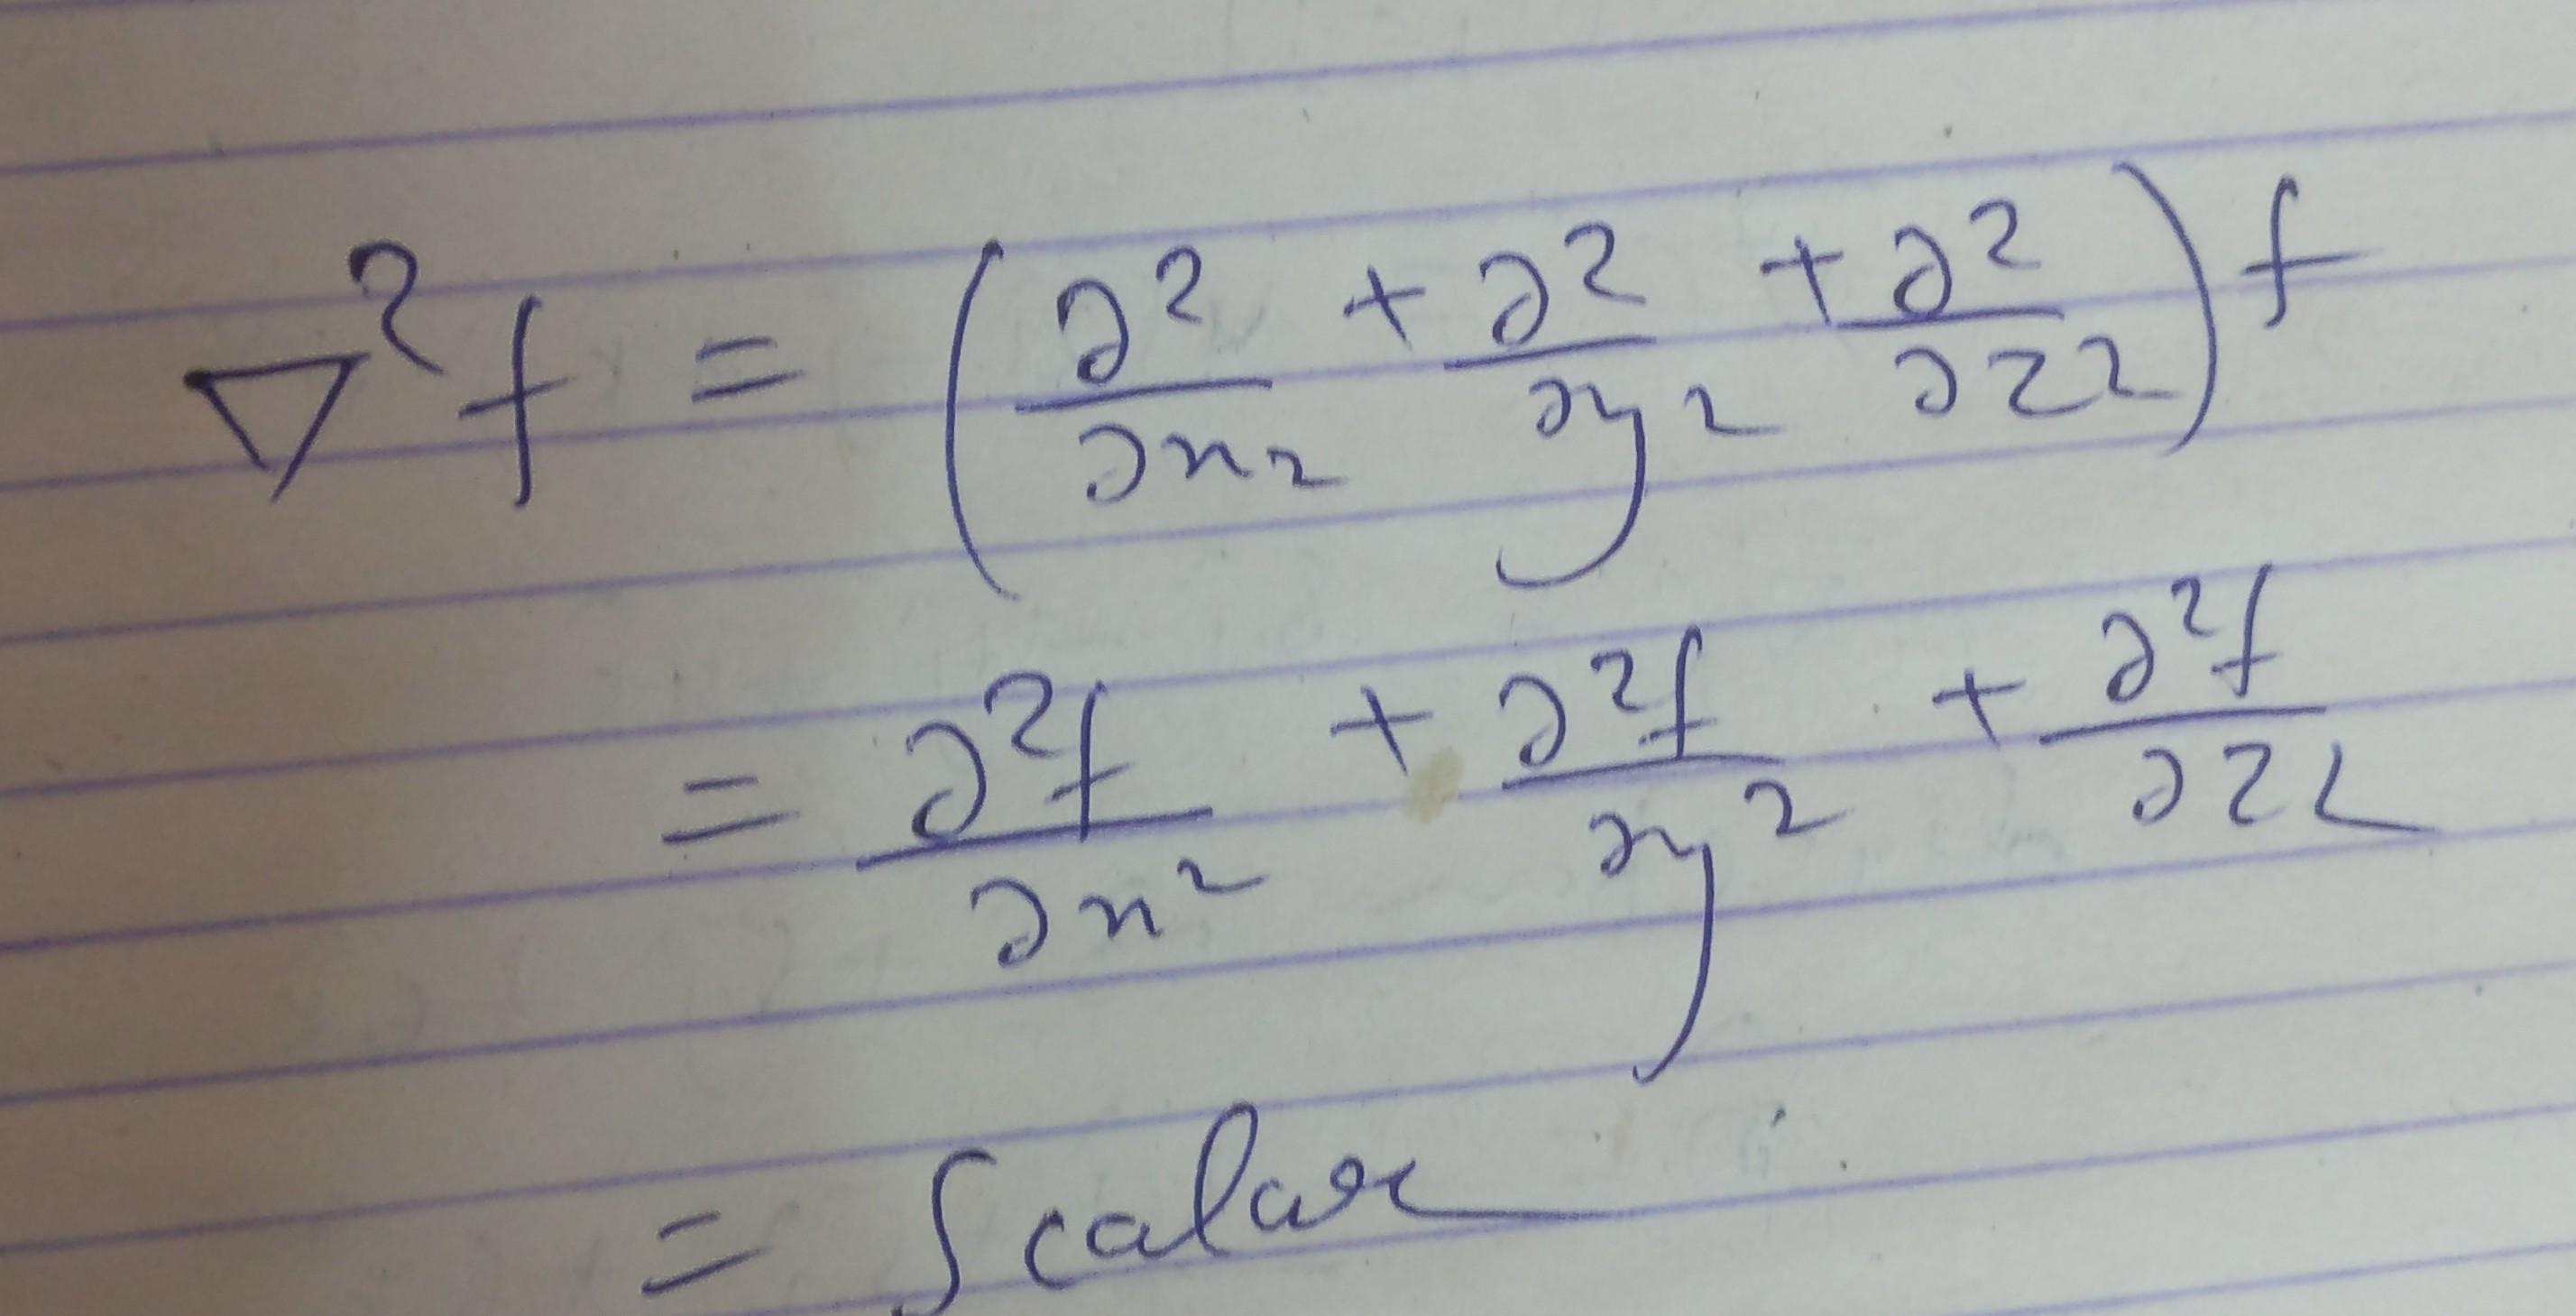 ∇²f = (∂²/∂x² + ∂²/∂y² + ∂²/∂z²) f
= ∂²f/∂x² + ∂²f/∂y² + ∂²f/∂z²
= Scalar